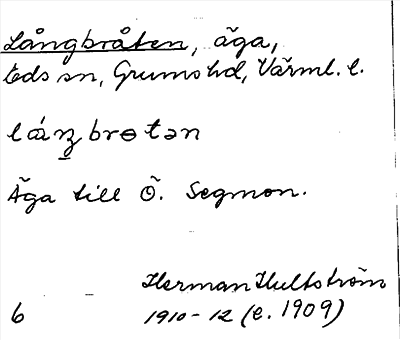 Långbråten, äga,
Eds sn, Grums hd, Värml. l.
Äga till Ö. Segmon.
Herman Hultström
6 1910-12 (e. 1909)